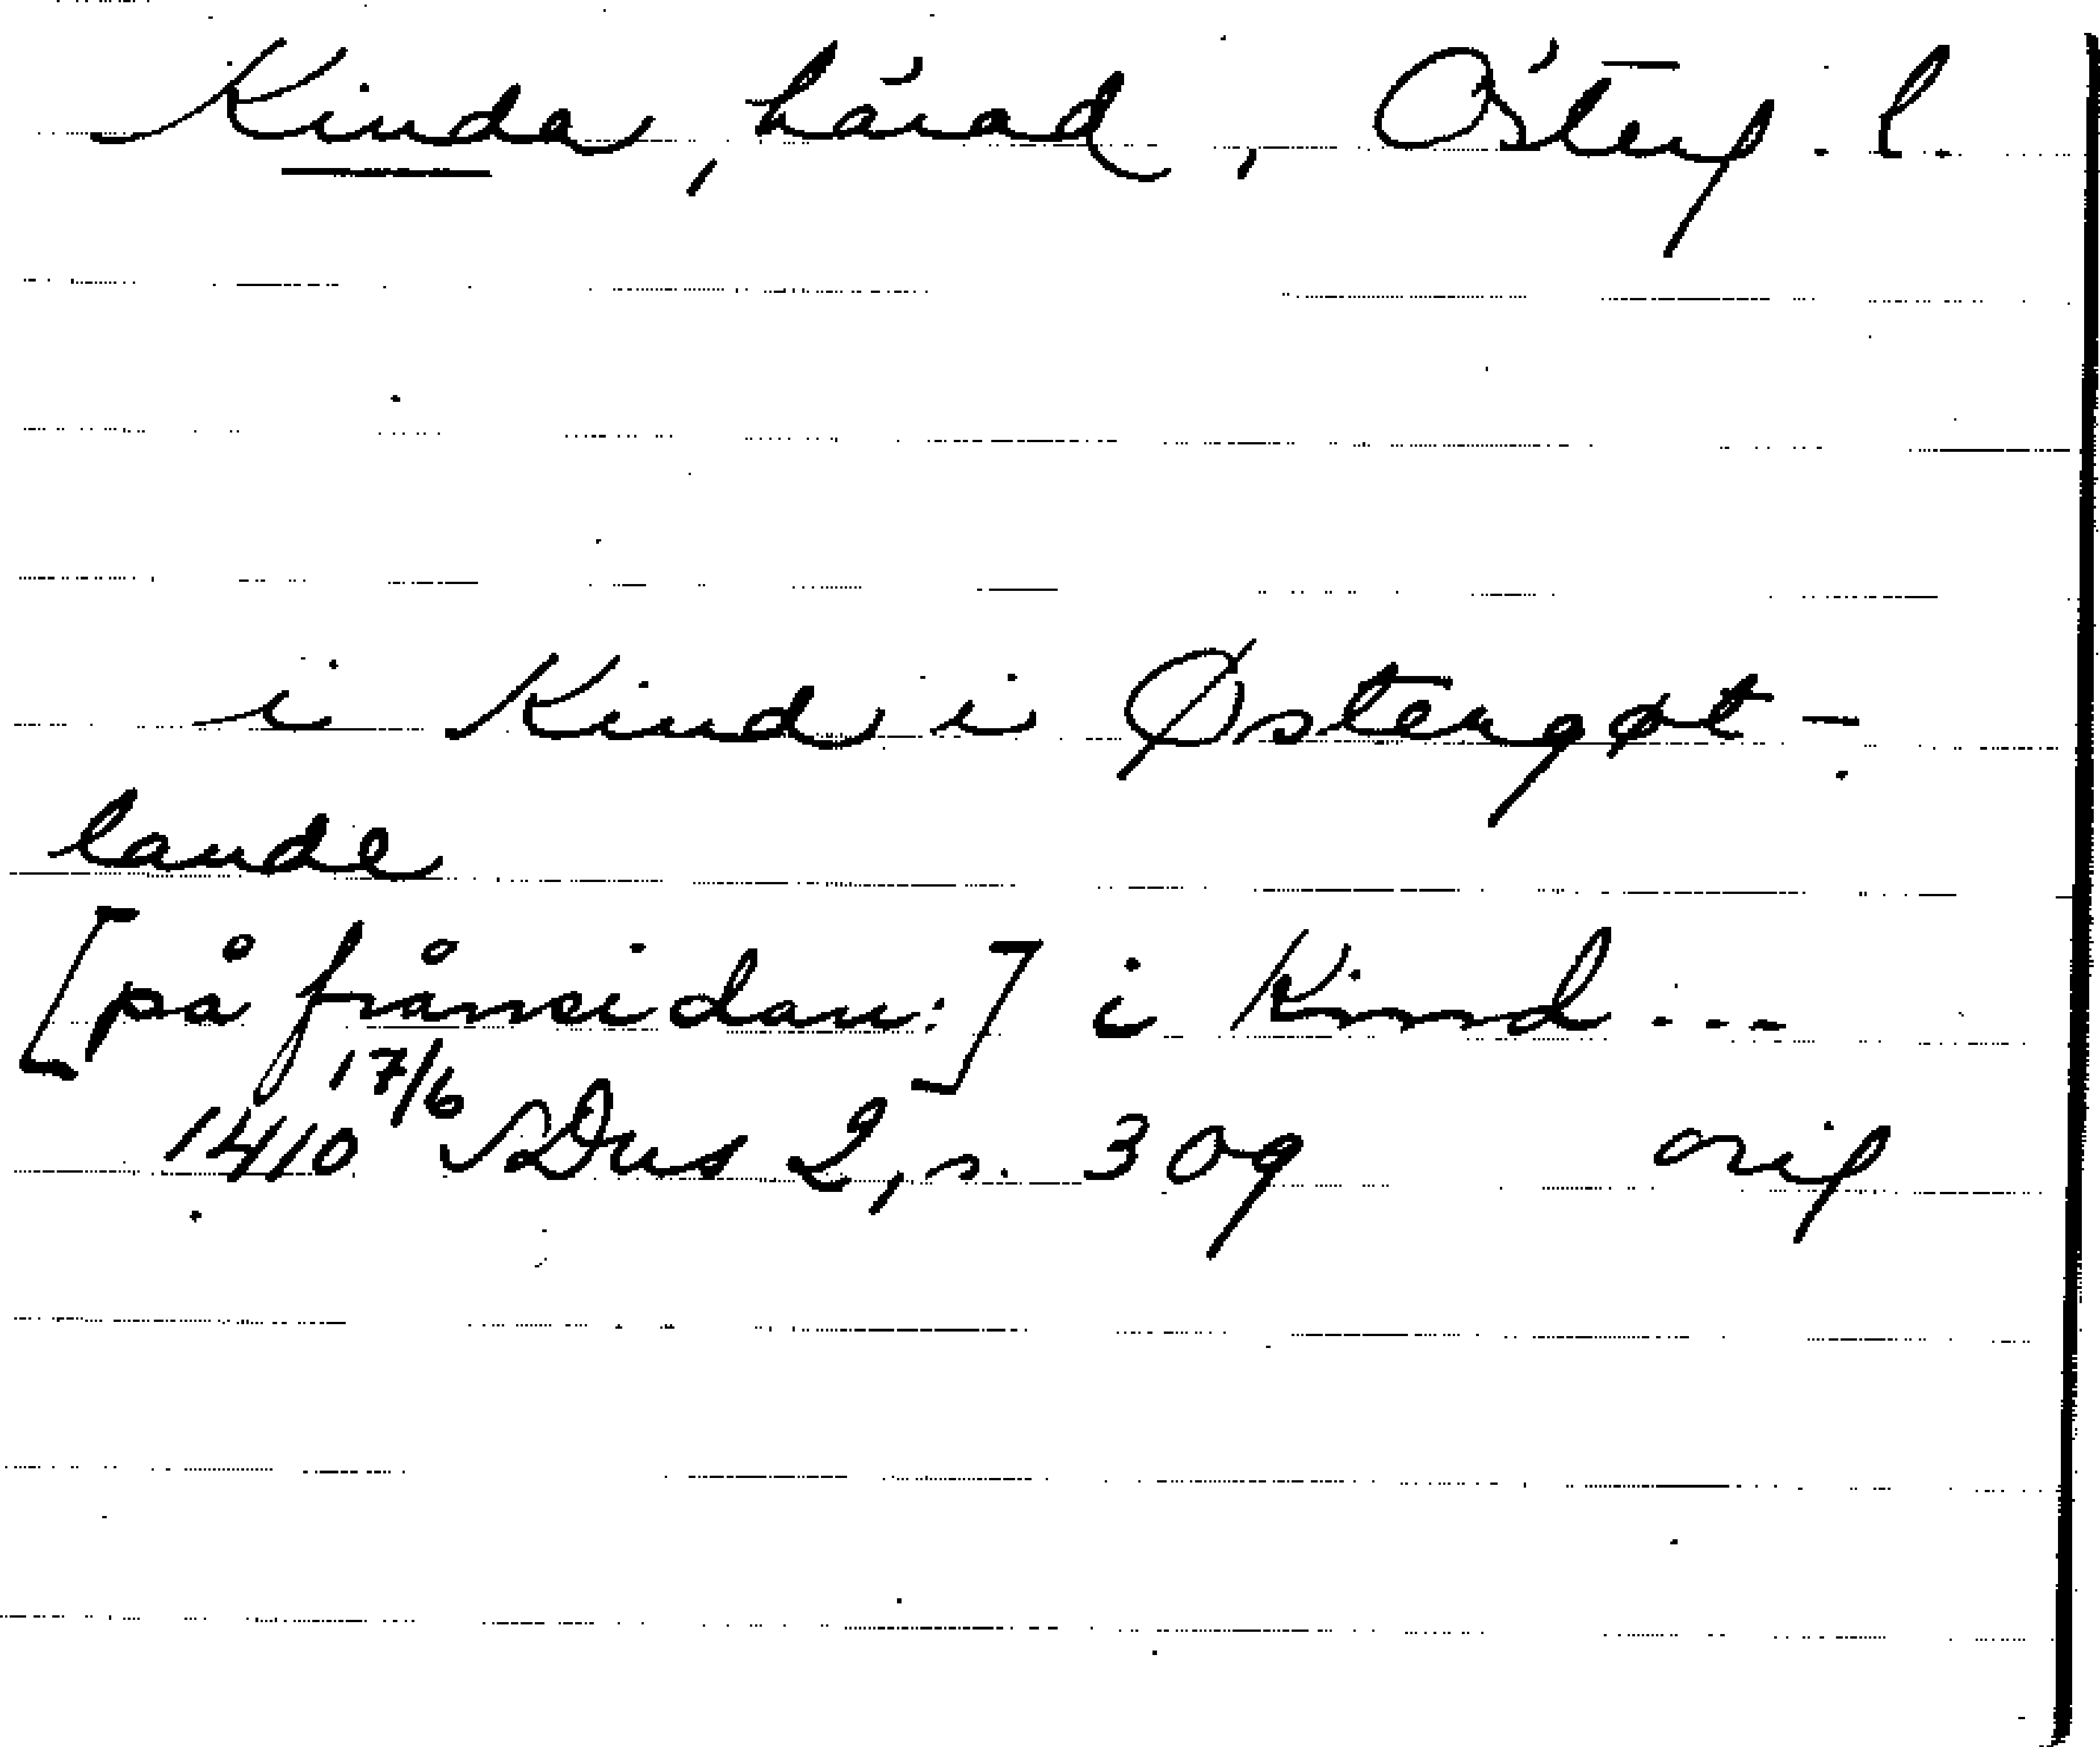 Kinda, härad, Österg. l.
i Kind i Østergøt-
lande
[på frånsidan:] i Kinnd ...
1410 17/6 SDns 2, s. 309 orig